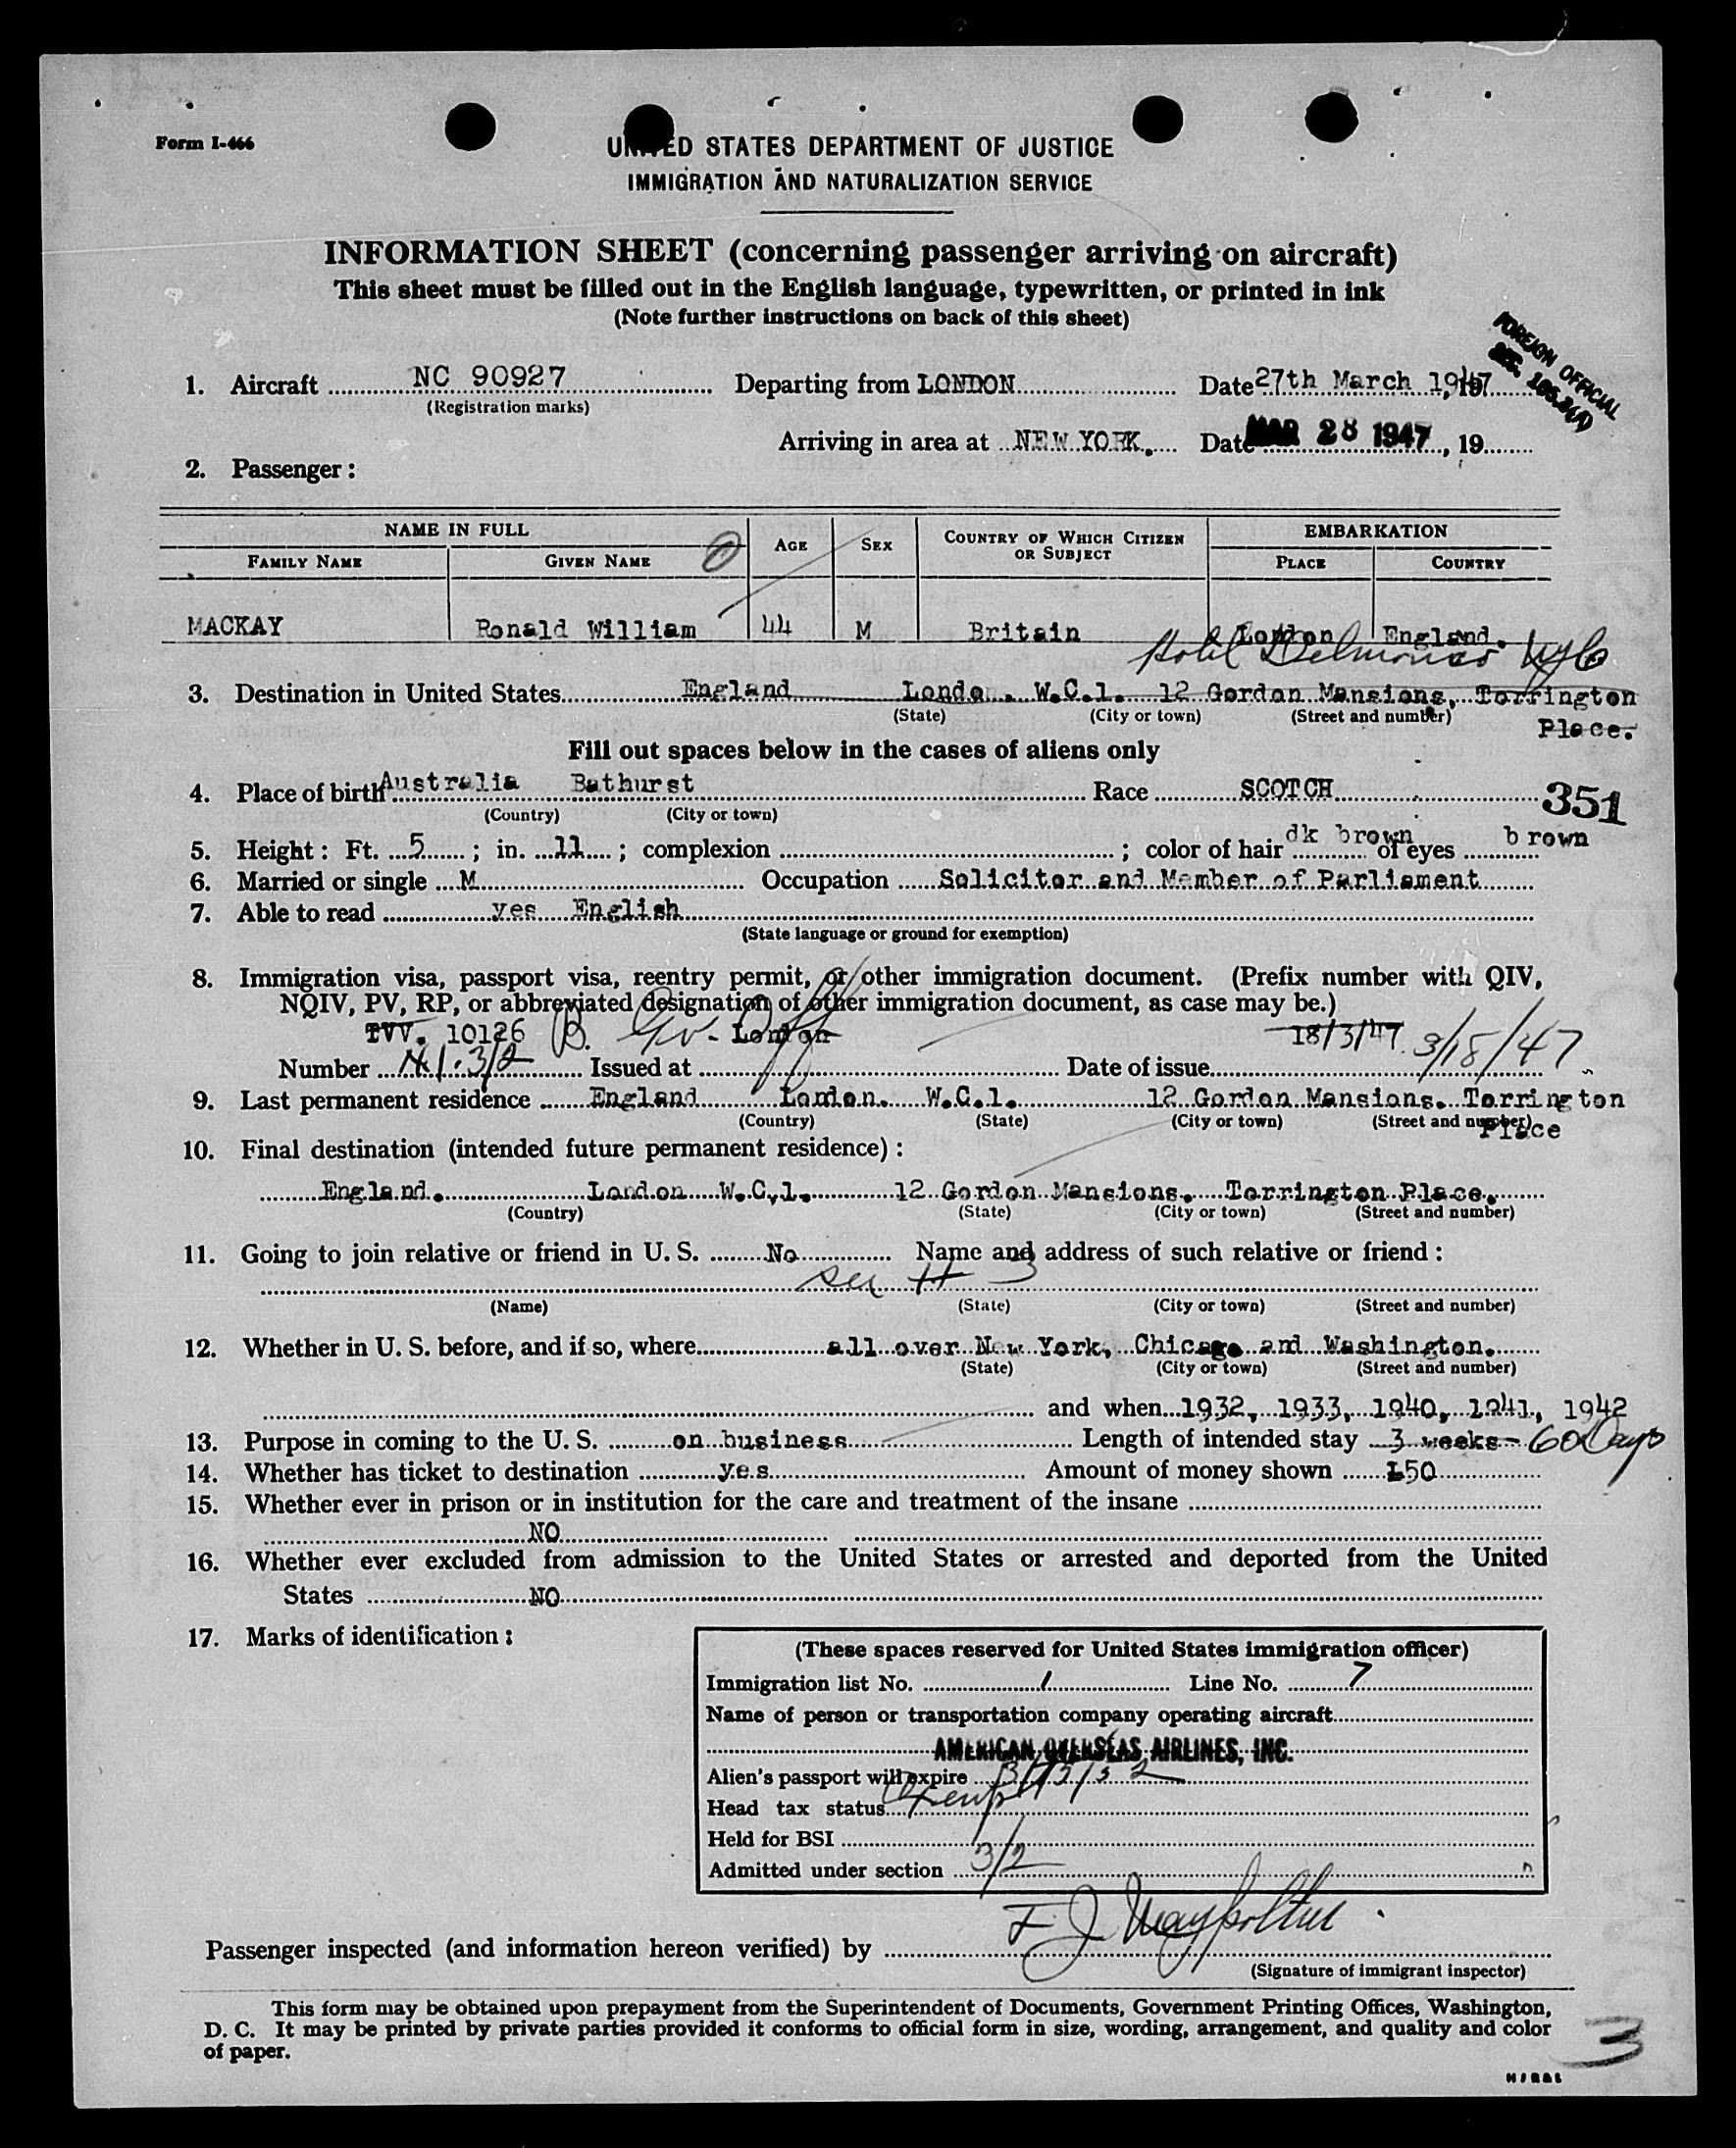 Form I-466
UNITED STATES DEPARTMENT OF JUSTICE
IMMIGRATION AND NATURALIZATION SERVICE
INFORMATION SHEET (concerning passenger arriving on aircraft)
This sheet must be filled out in the English language, typewritten, or printed in ink
(Note further instructions on back of this sheet)
FOREIGN OFFICIAL
1. Aircraft NC 90927 Departing from LONDON Date 27th March 1947, 19
(Registration marks)
Arriving in area at NEW YORK. Date MAR 28 1947, 19
2. Passenger:
NAME IN FULL AGE SEX COUNTRY OF WHICH CITIZEN OR SUBJECT EMBARKATION
FAMILY NAME GIVEN NAME PLACE COUNTRY
MACKAY Ronald William 44 M Britain London England.
Hotel Delmonico NYC
3. Destination in United States England London. W.C.1. 12 Gordon Mansions, Torrington
(State) (City or town) (Street and number)
Place.
Fill out spaces below in the cases of aliens only
4. Place of birth Australia Bathurst Race SCOTCH 351
(Country) (City or town)
5. Height: Ft. 5; in. 11; complexion ; color of hair dk brown of eyes brown
6. Married or single M Occupation Solicitor and Member of Parliament
7. Able to read yes English
(State language or ground for exemption)
8. Immigration visa, passport visa, reentry permit, or other immigration document. (Prefix number with QIV,
NQIV, PV, RP, or abbreviated designation of other immigration document, as case may be.)
TVV. 10126 B. Gv. Off London 18/3/47. 3/18/47
Number 3/2 Issued at Date of issue
9. Last permanent residence England London. W.C.1. 12 Gordon Mansions. Torrington
(Country) (State) (City or town) (Street and number)
Place
10. Final destination (intended future permanent residence):
England. London W.C.1. 12 Gordon Mansions. Torrington Place.
(Country) (State) (City or town) (Street and number)
11. Going to join relative or friend in U. S. No Name and address of such relative or friend:
see # 3
(Name) (State) (City or town) (Street and number)
12. Whether in U. S. before, and if so, where all over New York, Chicago and Washington.
(State) (City or town) (Street and number)
and when 1932, 1933, 1940, 1941, 1942
13. Purpose in coming to the U. S. on business Length of intended stay 3 weeks 60 Days
14. Whether has ticket to destination yes Amount of money shown £50
15. Whether ever in prison or in institution for the care and treatment of the insane
NO
16. Whether ever excluded from admission to the United States or arrested and deported from the United
States NO
17. Marks of identification:
(These spaces reserved for United States immigration officer)
Immigration list No. 1 Line No. 7
Name of person or transportation company operating aircraft
AMERICAN OVERSEAS AIRLINES, INC.
Alien's passport will expire
Head tax status Exempt
Held for BSI
Admitted under section 3/2
F J
Passenger inspected (and information hereon verified) by
(Signature of immigrant inspector)
This form may be obtained upon prepayment from the Superintendent of Documents, Government Printing Offices, Washington,
D. C. It may be printed by private parties provided it conforms to official form in size, wording, arrangement, and quality and color
of paper.
3